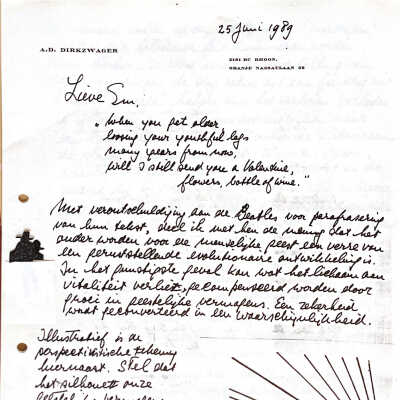 25 Juni 1989
A.D. DIRKZWAGER
3161 BC RHOON,
ORANJE NASSAULAAN 28
Lieve Em,
"When you get older
loosing your youthful legs
many years from now,
will I still send you a Valentine,
flowers, bottle of wine."
Met verontschuldiging aan de Beatles voor parafrasering
van hun tekst, deel ik met hen de mening dat het
ouder worden voor de menselijke geest een verre van
een geruststellende evolutionaire ontwikkeling is.
In het gunstigste geval kan wat het lichaam aan
vitaliteit verliest, gecompenseerd worden door
groei in geestelijke vermogens. Een zekerheid
wordt geconverteerd in een waarschijnlijkheid.
Illustratief is de
perspectivistische tekening
hiernaast. Stel dat
het silhouet onze